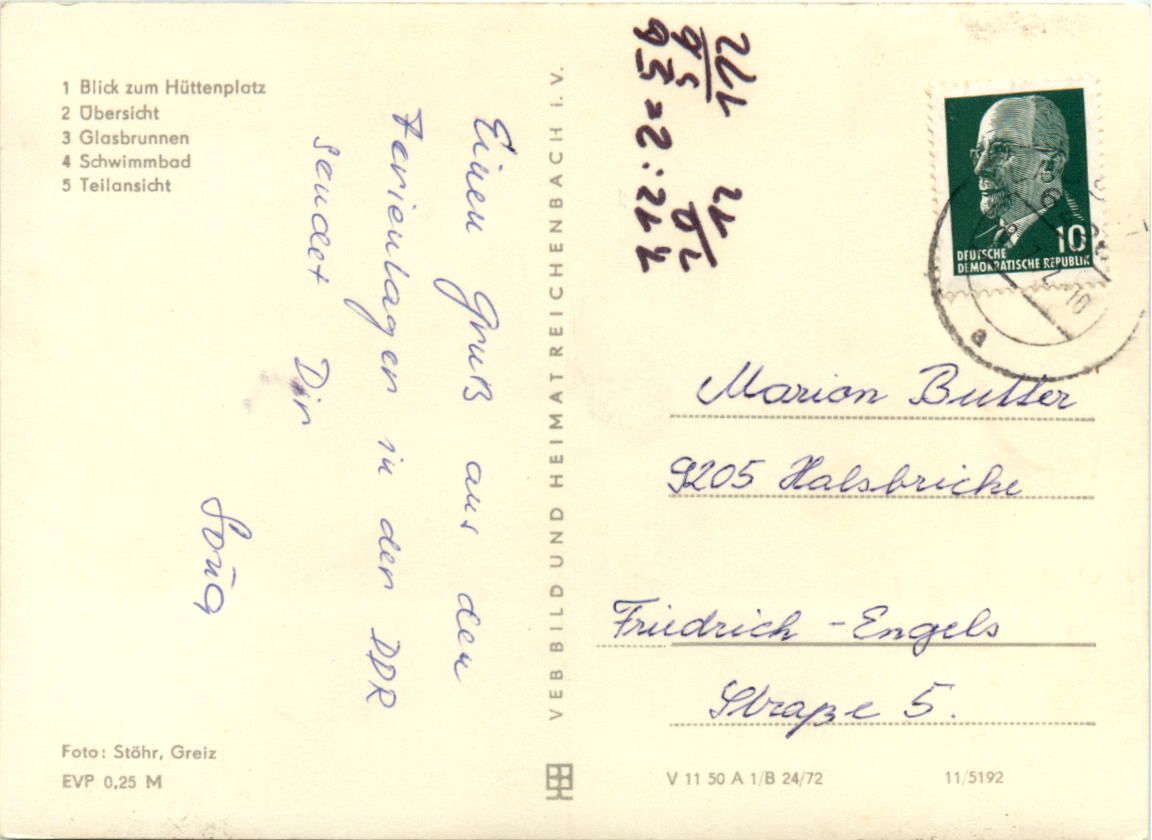 1 Blick zum Hüttenplatz
2 Übersicht
3 Glasbrunnen
4 Schwimmbad
5 Teilansicht
Einen Gruß aus den
Ferientagen in der DDR
sendet Dir
Foto: Stöhr, Greiz
EVP 0,25 M
VEB BILD UND HEIMAT REICHENBACH i. V.
112
95
10
DEUTSCHE
DEMOKRATISCHE REPUBLIK
a
Marion Butter
9205 Halsbricke
Friedrich-Engels
Straße 5.
V 11 50 A 1/B 24/72
11/5192